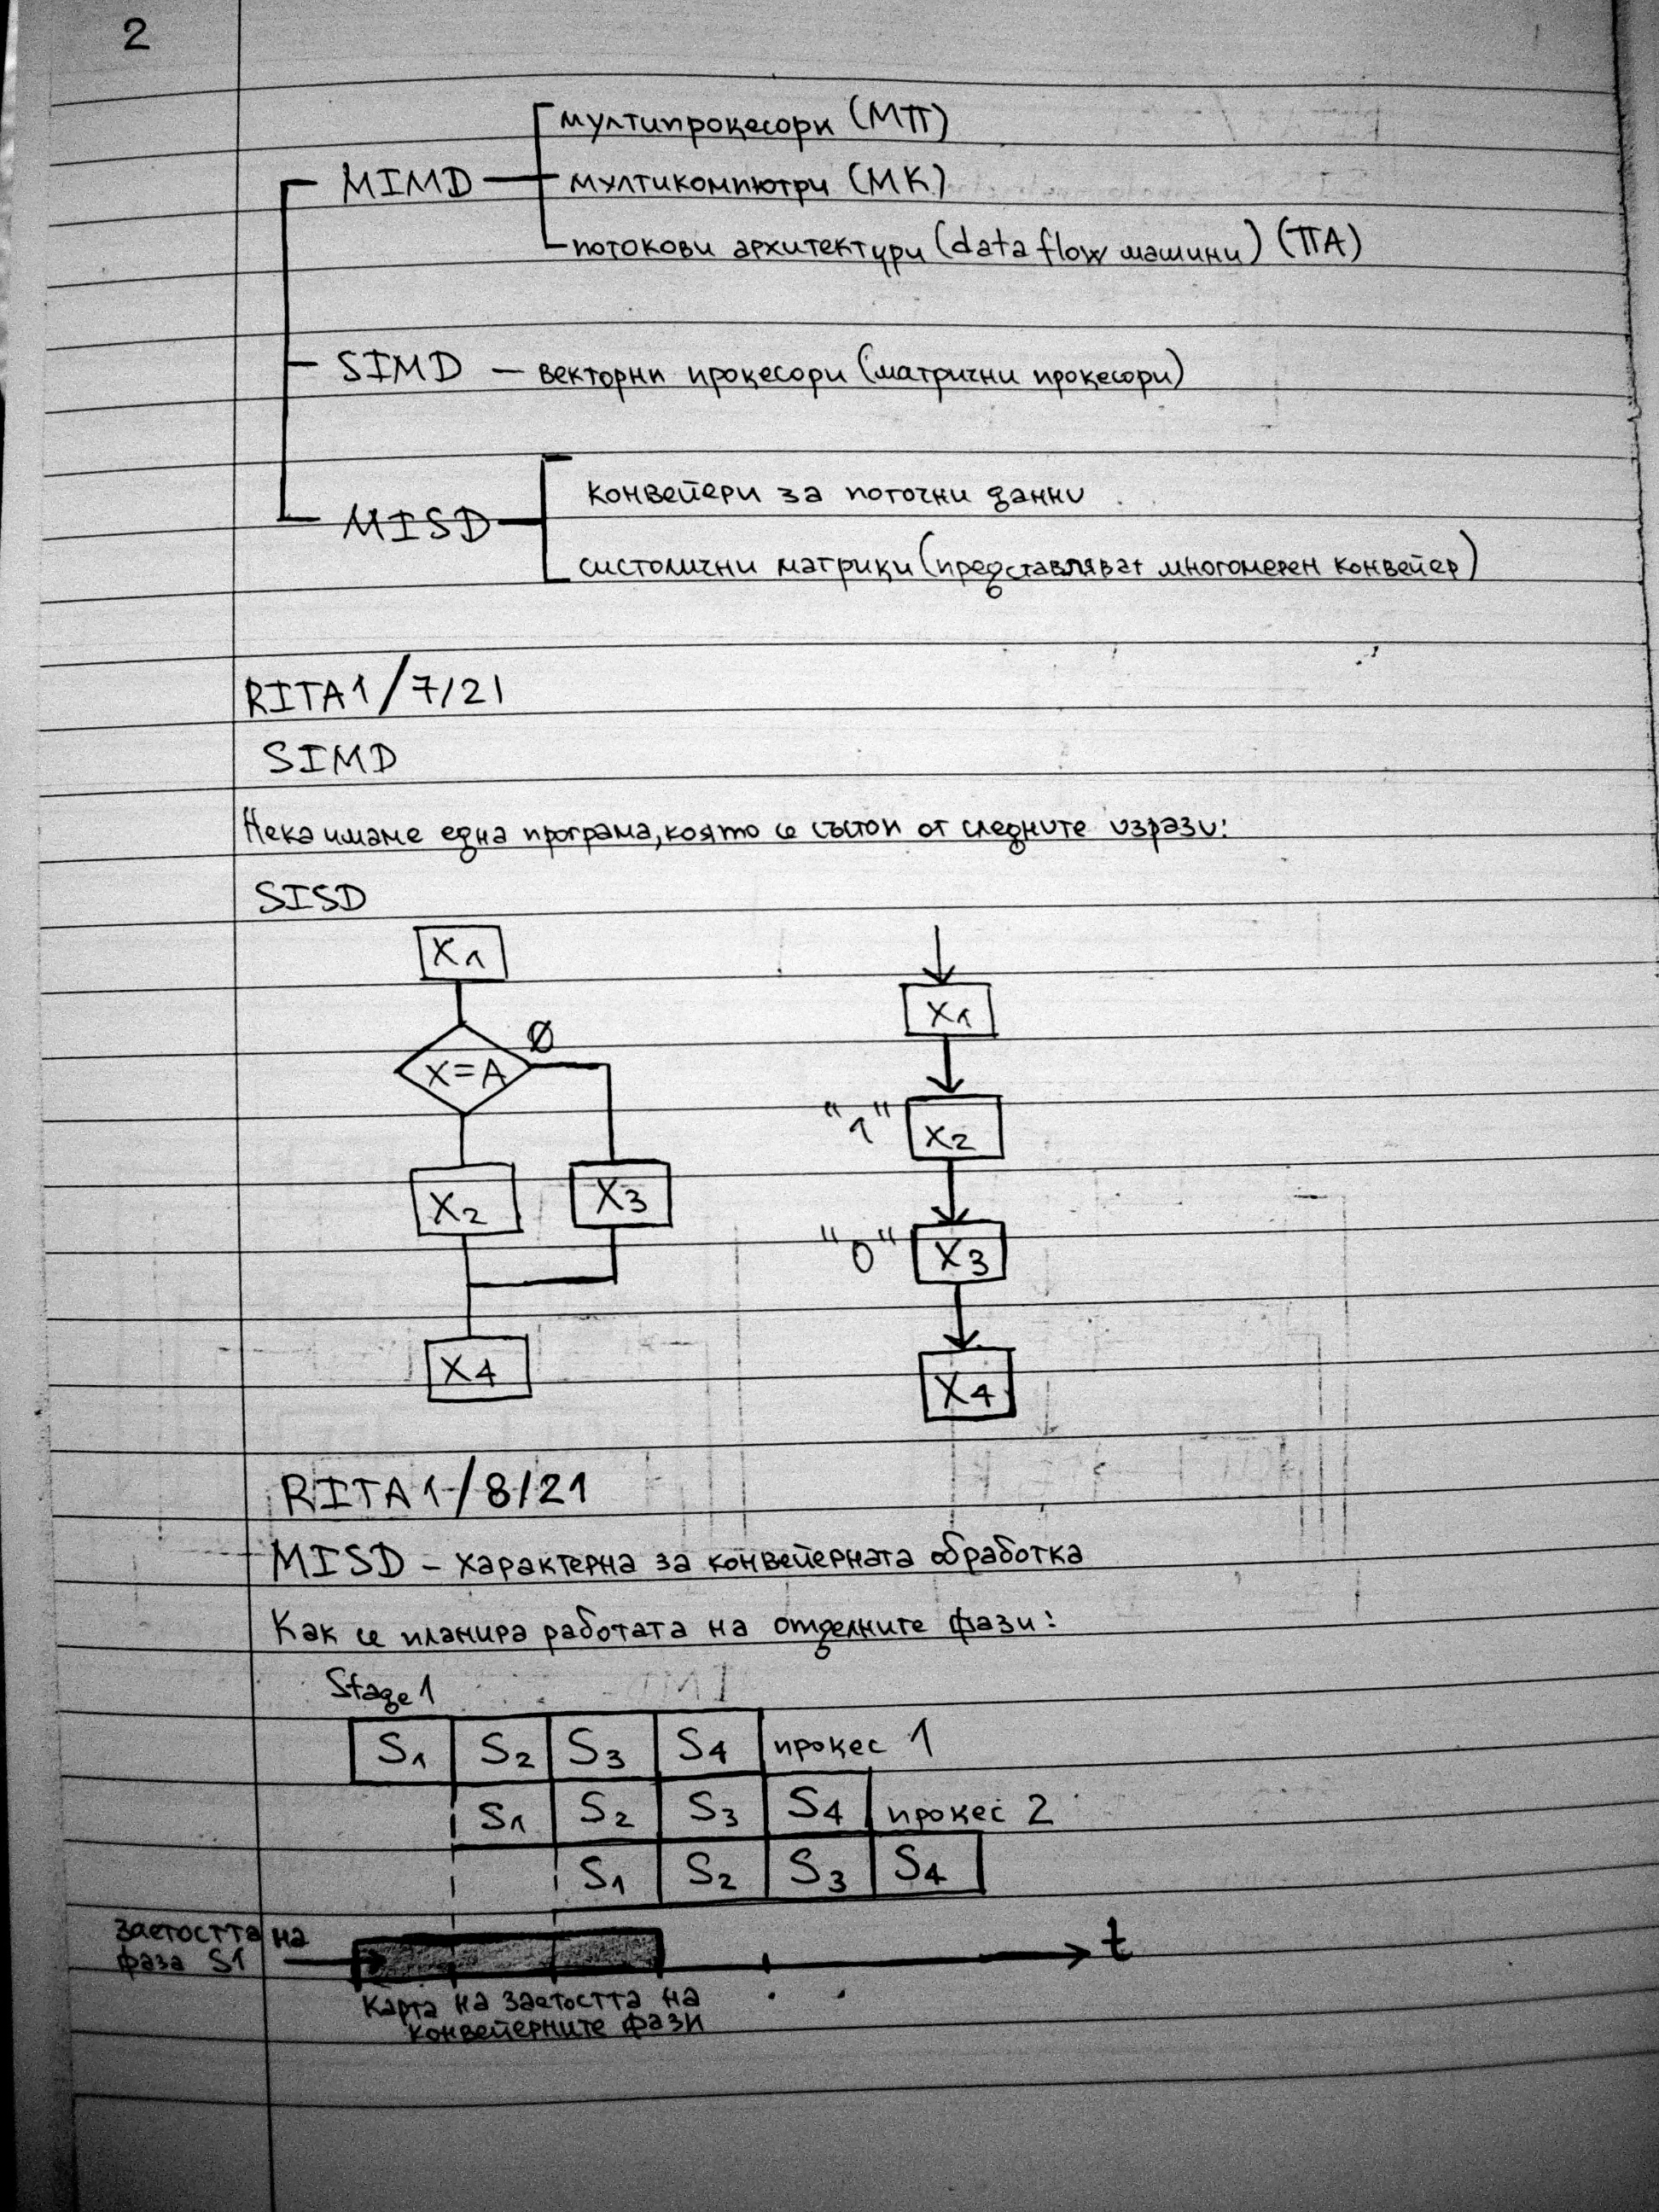 2
мултипроцесори (МП)
MIMD
мултикомпютри (МК)
потокови архитектури (data flow машини) (ПА)
SIMD – векторни процесори (матрични процесори)
конвейери за поточни данни
MISD
систолични матрици (представляват многомерен конвейер)
RITA1/7/21
SIMD
Нека имаме една програма, която се състои от следните изрази:
SISD
X1
X1
Ø
X=A
"1" X2
X2 X3
"0" X3
X4
X4
RITA1/8/21
MISD – характерна за конвейерната обработка
Как се планира работата на отделните фази:
Stage 1
S1 S2 S3 S4 процес 1
S1 S2 S3 S4 процес 2
S1 S2 S3 S4
заетостта на
фаза S1
t
Карта на заетостта на
конвейерните фази